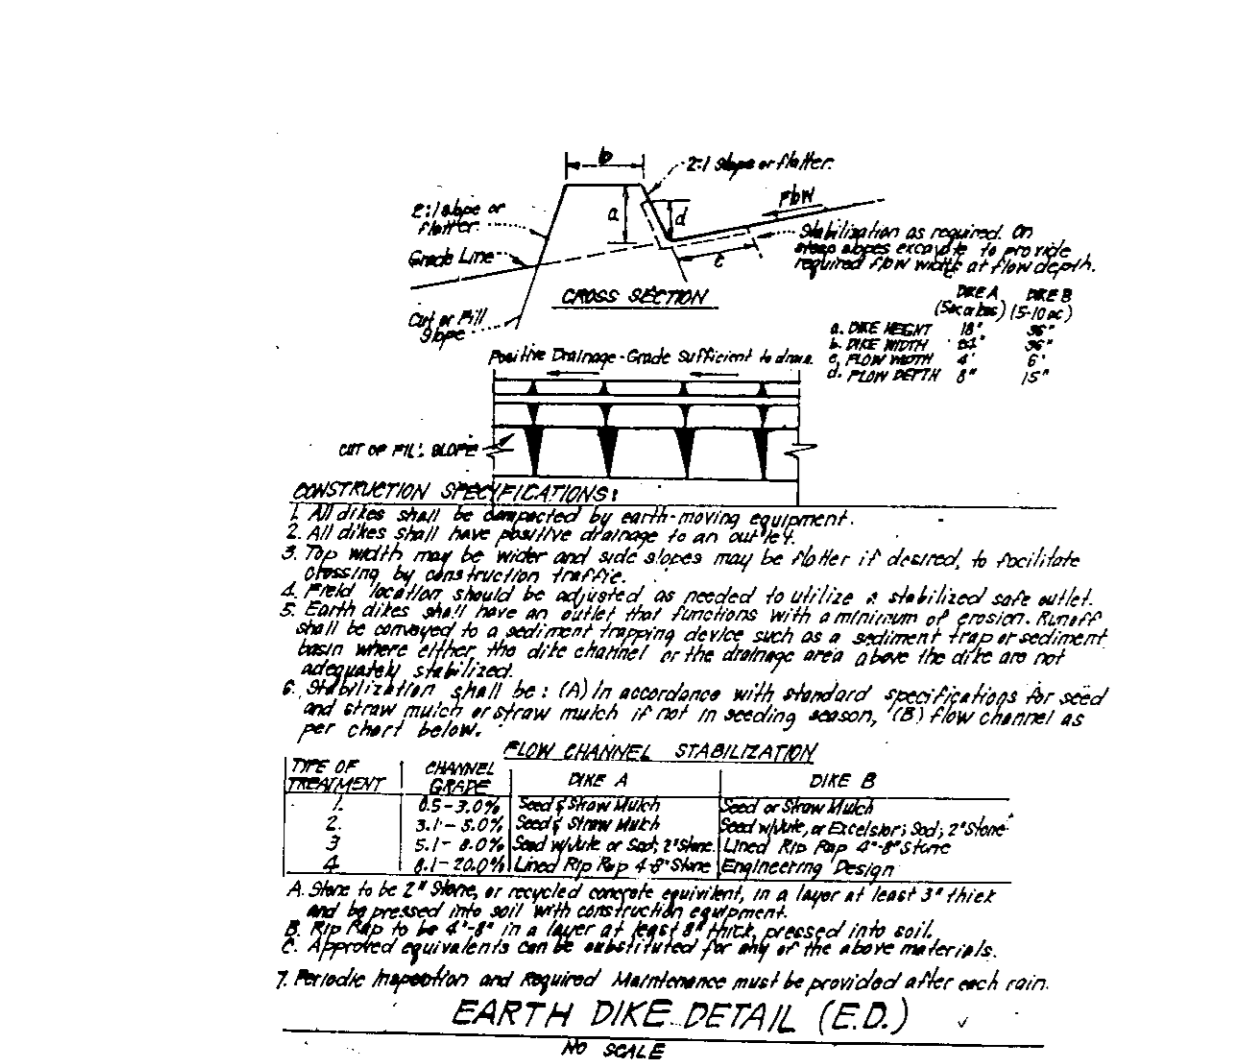 b
2:1 Slope or flatter.
Flow
2:1 slope or
flatter.
a
d
Stabilization as required. On
steep slopes excavate to provide
required flow width at flow depth.
Grade Line
c
CROSS SECTION
Cut or Fill
Slope
DIKE A DIKE B
(5ac or less) (5-10 ac)
a. DIKE HEIGHT 18" 36"
b. DIKE WIDTH 24" 36"
c. FLOW WIDTH 4' 6'
d. FLOW DEPTH 8" 15"
Positive Drainage - Grade Sufficient to drain.
CUT OF FILL SLOPE
CONSTRUCTION SPECIFICATIONS:
1. All dikes shall be compacted by earth-moving equipment.
2. All dikes shall have positive drainage to an outlet.
3. Top width may be wider and side slopes may be flatter if desired, to facilitate
crossing by construction traffic.
4. Field location should be adjusted as needed to utilize a stabilized safe outlet.
5. Earth dikes shall have an outlet that functions with a minimum of erosion. Runoff
shall be conveyed to a sediment trapping device such as a sediment trap or sediment
basin where either the dike channel or the drainage area above the dike are not
adequately stabilized.
6. Stabilization shall be: (A) In accordance with standard specifications for seed
and straw mulch or straw mulch if not in seeding season, (B) flow channel as
per chart below.
FLOW CHANNEL STABILIZATION
TYPE OF TREATMENT CHANNEL GRADE DIKE A DIKE B
1. 0.5-3.0% Seed & Straw Mulch Seed or Straw Mulch
2. 3.1-5.0% Seed & Straw Mulch Seed w/Jute, or Excelsior; Sod; 2" Stone
3 5.1-8.0% Seed w/Jute or Sod; 2" Stone. Lined Rip Rap 4"-8" Stone
4. 8.1-20.0% Lined Rip Rap 4-8" Stone Engineering Design
A. Stone to be 2" Stone, or recycled concrete equivilent, in a layer at least 3" thick
and be pressed into soil with construction equipment.
B. Rip Rap to be 4"-8" in a layer at least 8" thick, pressed into soil.
C. Approved equivalents can be substituted for any of the above materials.
7. Periodic Inspection and Required Maintenance must be provided after each rain.
EARTH DIKE DETAIL (E.D.)
NO SCALE